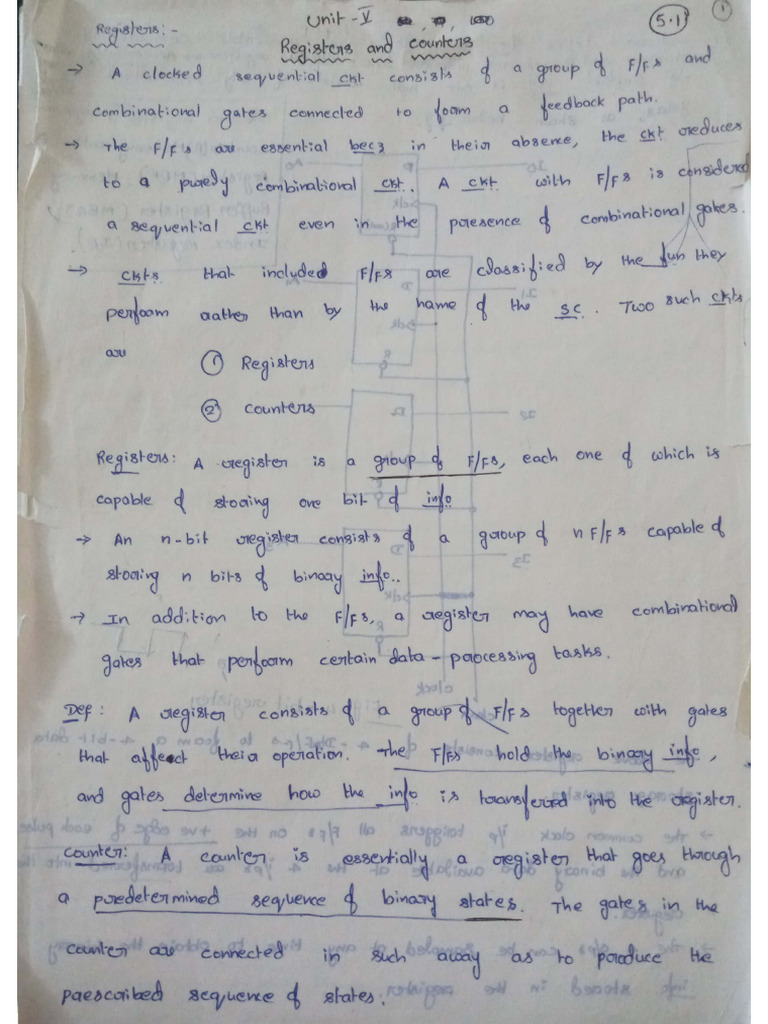 Registers:-
Unit - V
5.1
1
Registers and counters
→ A clocked sequential ckt consists of a group of F/Fs and
combinational gates connected to form a feedback path.
→ The F/Fs are essential becz in their absence, the ckt reduces
to a purely combinational ckt. A ckt with F/Fs is considered
a sequential ckt even in the presence of combinational gates.
→ ckts that included F/Fs are classified by the fun they
perform rather than by the name of the sc. Two such ckts
are ① Registers
② counters
Registers: A register is a group of F/Fs, each one of which is
capable of storing one bit of info
→ An n-bit register consists of a group of n F/Fs capable of
storing n bits of binary info..
→ In addition to the F/Fs, a register may have combinational
gates that perform certain data-processing tasks.
Def: A register consists of a group of F/Fs together with gates
that affect their operation. The F/Fs hold the binary info,
and gates determine how the info is transferred into the register.
counter: A counter is essentially a register that goes through
a predetermined sequence of binary states. The gates in the
counter are connected in such away as to produce the
prescribed sequence of states.